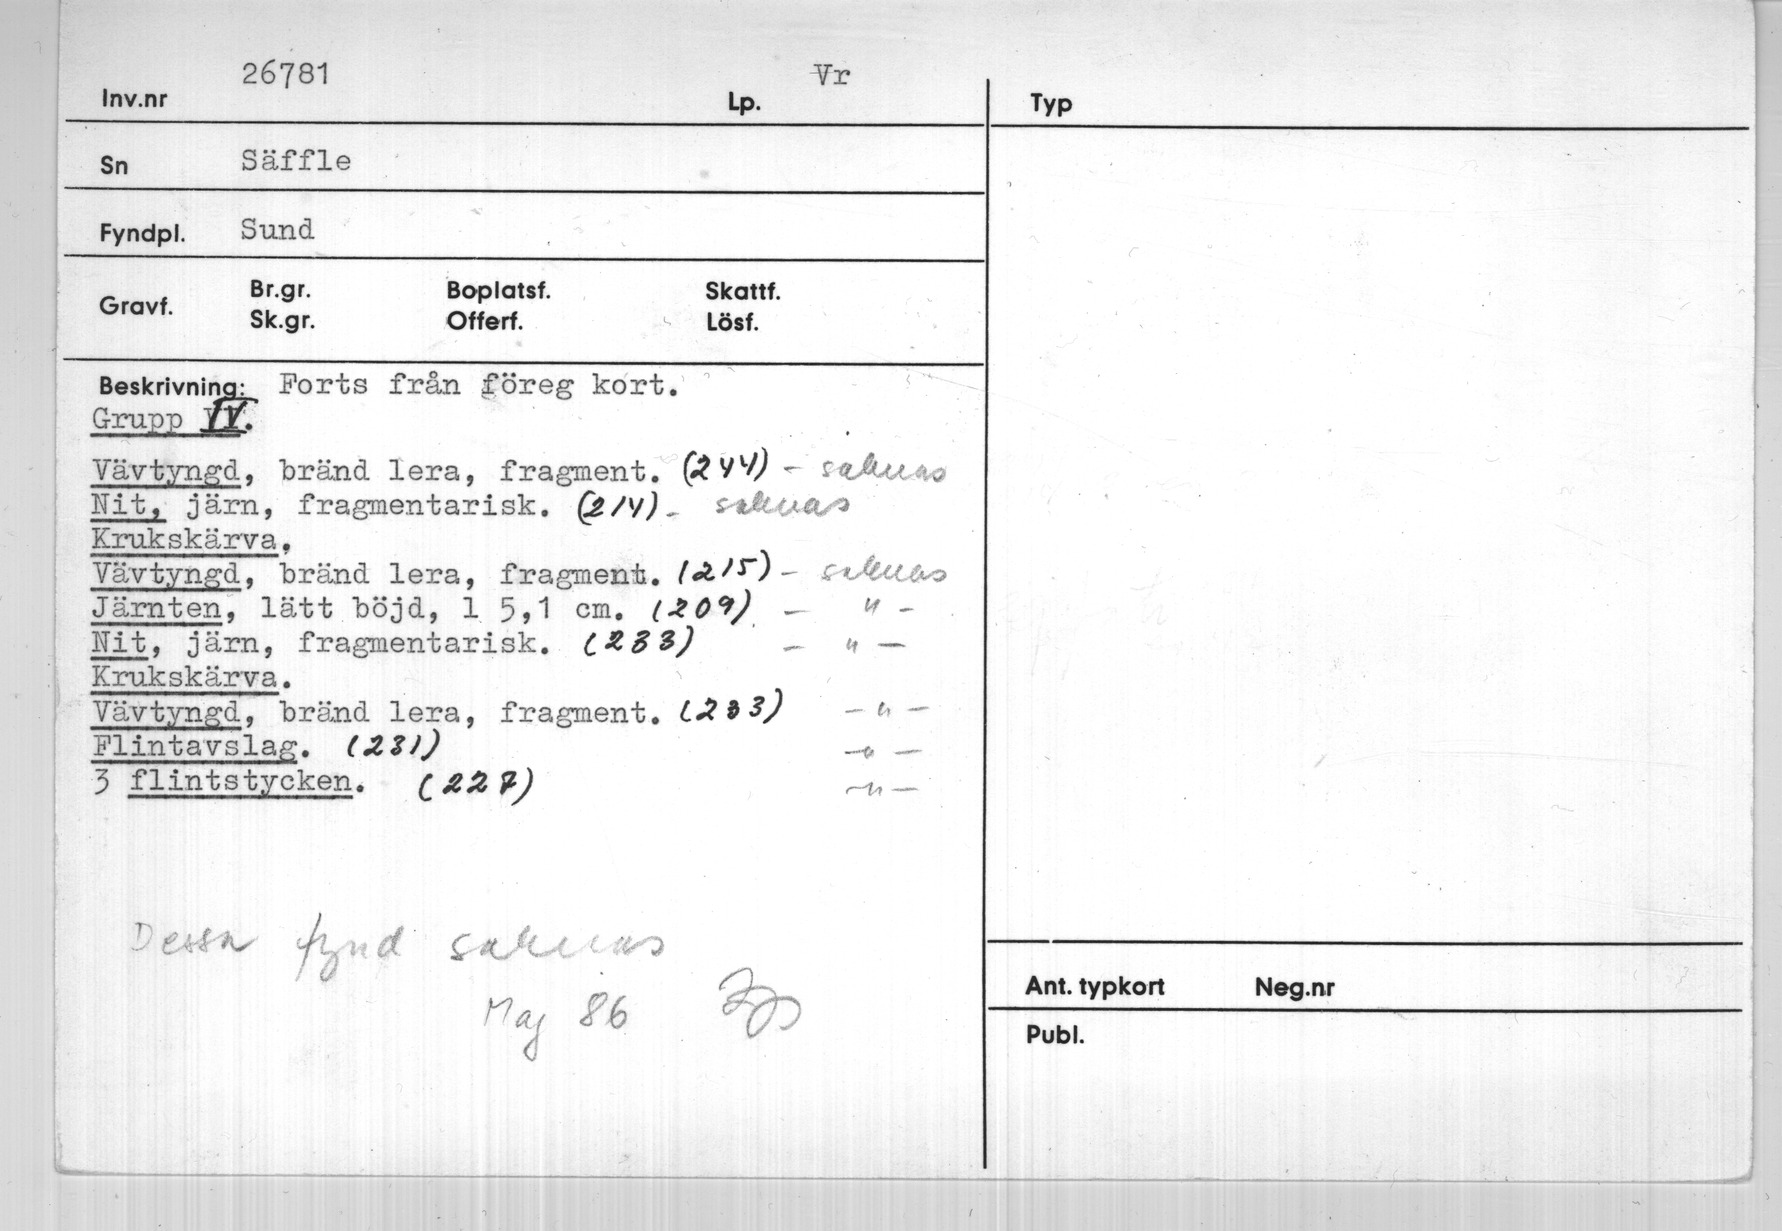 26781 Vr
Inv.nr Lp. Typ
Sn Säffle
Fyndpl. Sund
Gravf. Br.gr. Boplatsf. Skattf.
Sk.gr. Offerf. Lösf.
Beskrivning: Forts från föreg kort.
Grupp IV.
Vävtyngd, bränd lera, fragment. (244) - saknas
Nit, järn, fragmentarisk. (214) - saknas
Krukskärva.
Vävtyngd, bränd lera, fragment. (215) - saknas
Järnten, lätt böjd, l 5,1 cm. (209) - " -
Nit, järn, fragmentarisk. (233) - " -
Krukskärva.
Vävtyngd, bränd lera, fragment. (233) - " -
Flintavslag. (231) - " -
3 flintstycken. (227) - " -
Dessa fynd saknas
Maj 86
Ant. typkort Neg.nr
Publ.